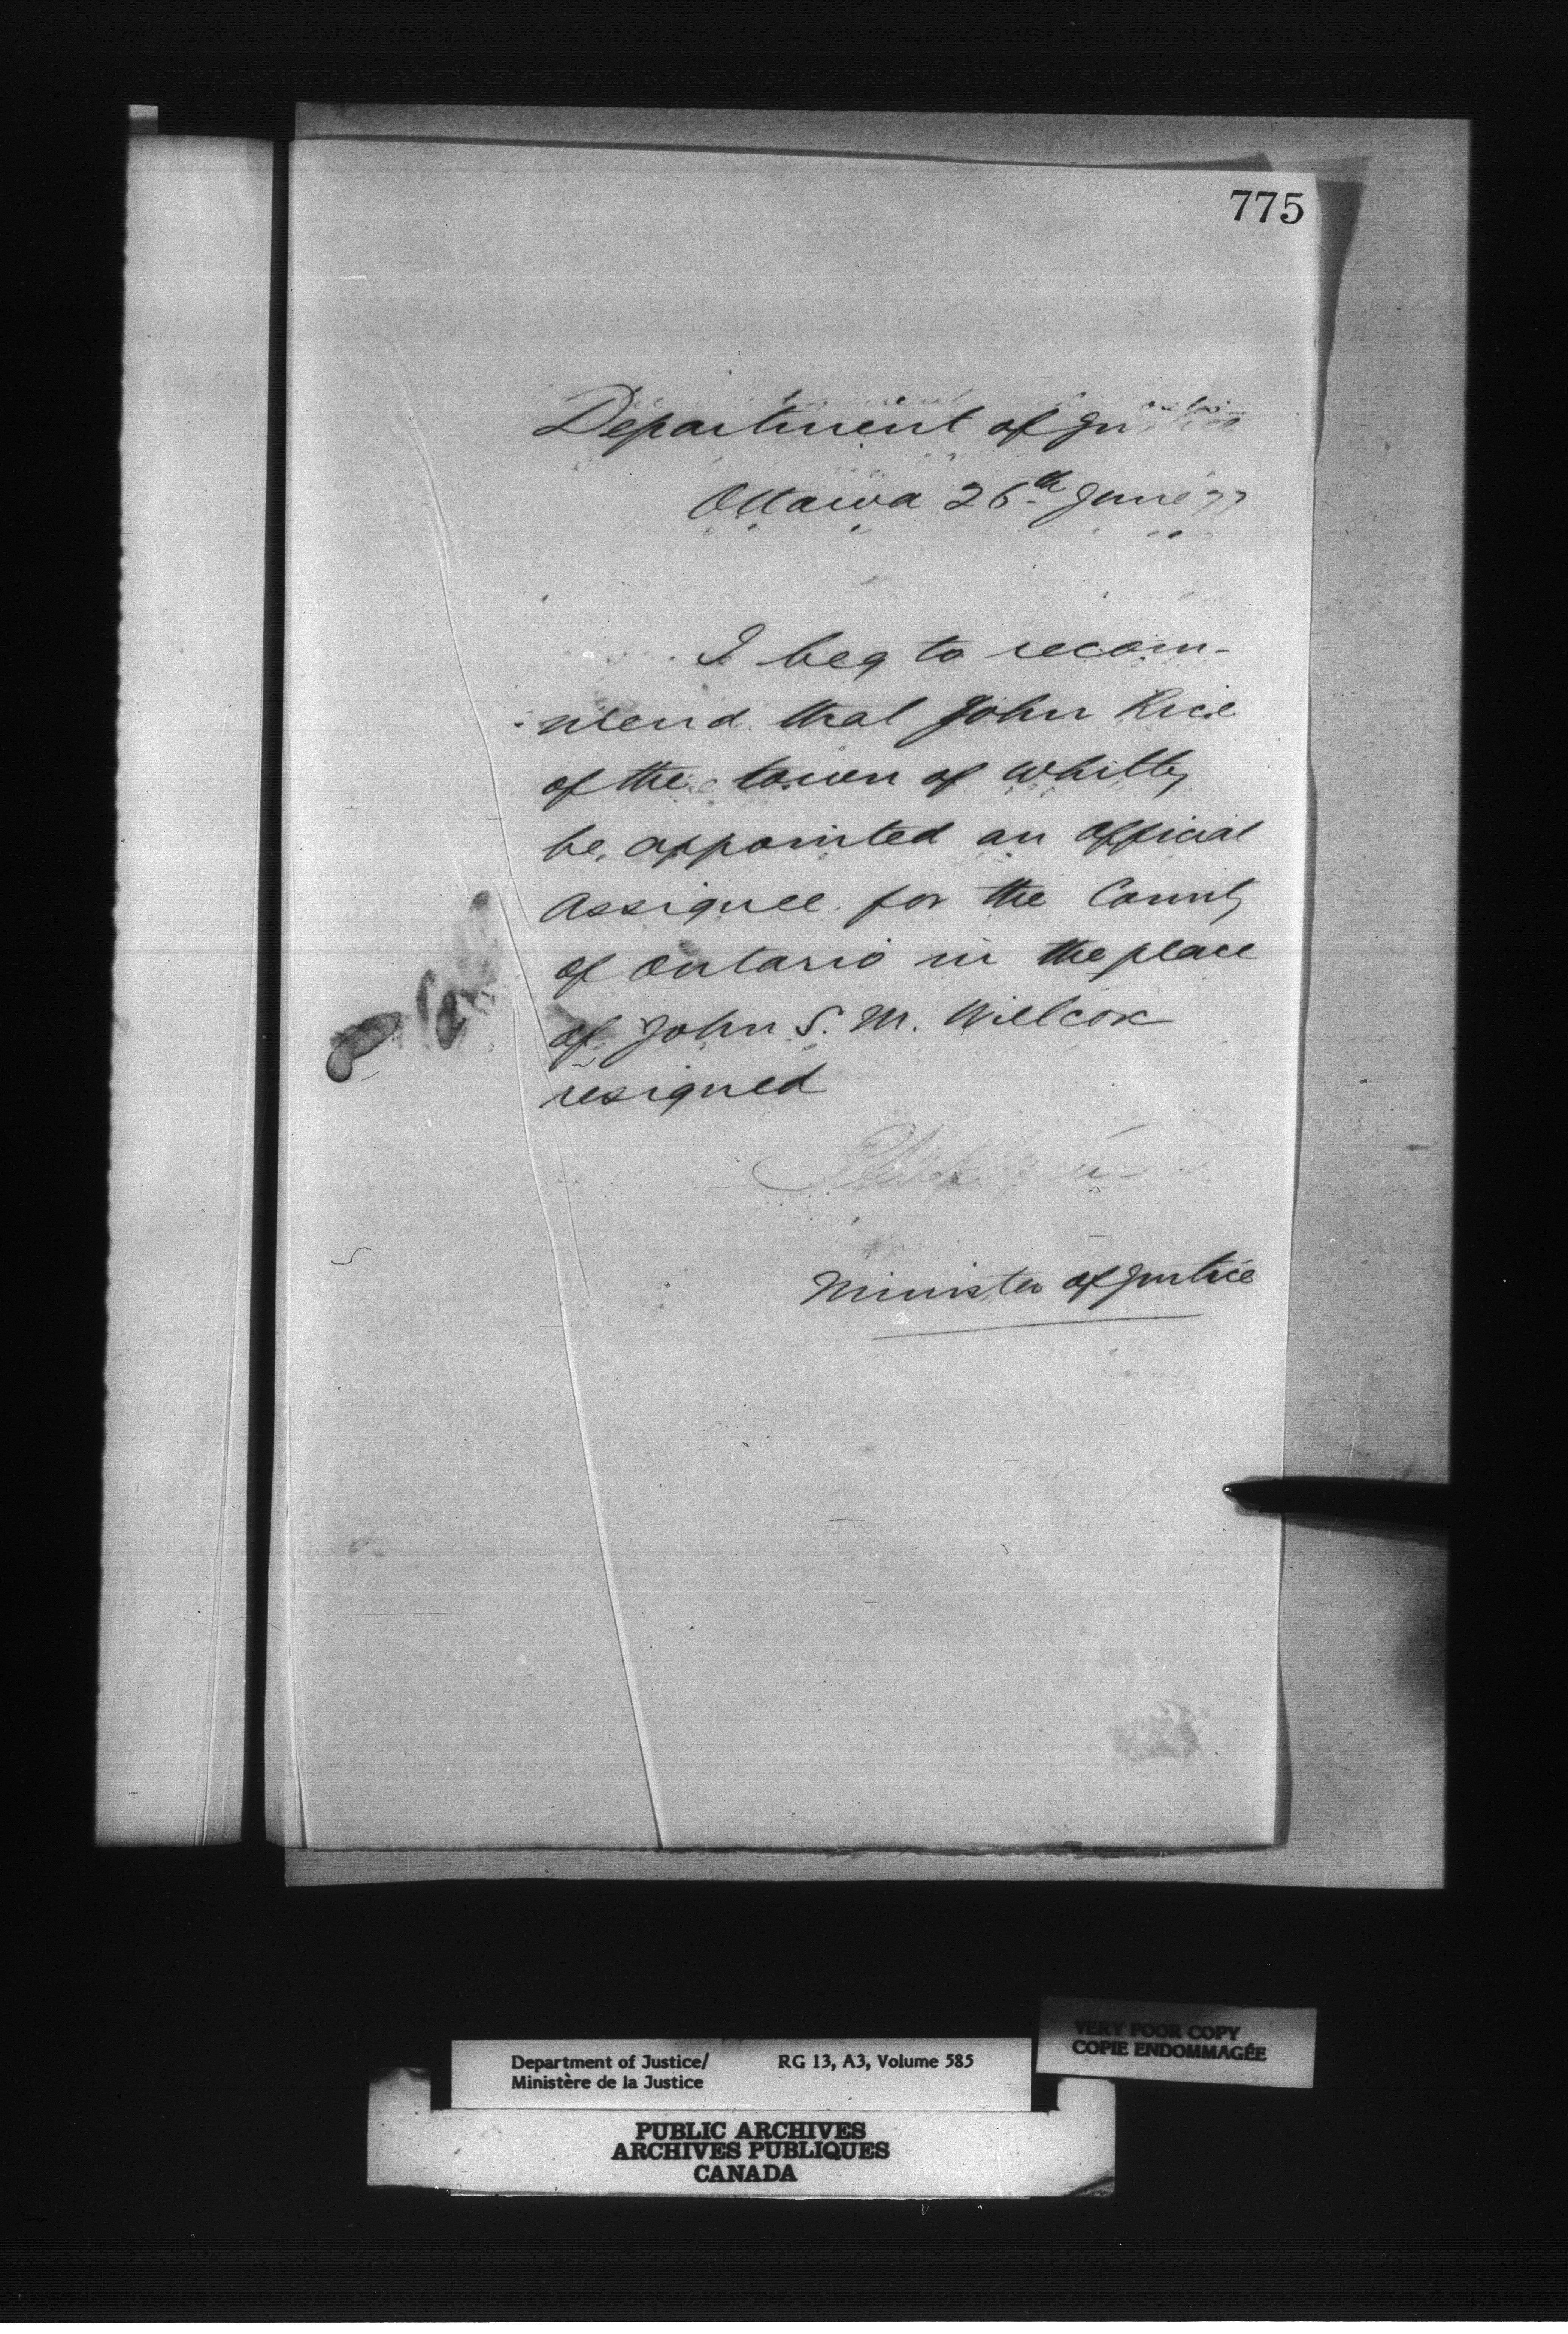 775
Department of Justice
Ottawa 26th June 77
I beg to recom-
-mend that John Rice
of the town of Whitby
be appointed an Official
Assignee for the County
of Ontario in the place
of John S. M. Willcox
resigned
Minister of Justice
VERY POOR COPY
COPIE ENDOMMAGÉE
Department of Justice/ RG 13, A3, Volume 585
Ministère de la Justice
PUBLIC ARCHIVES
ARCHIVES PUBLIQUES
CANADA